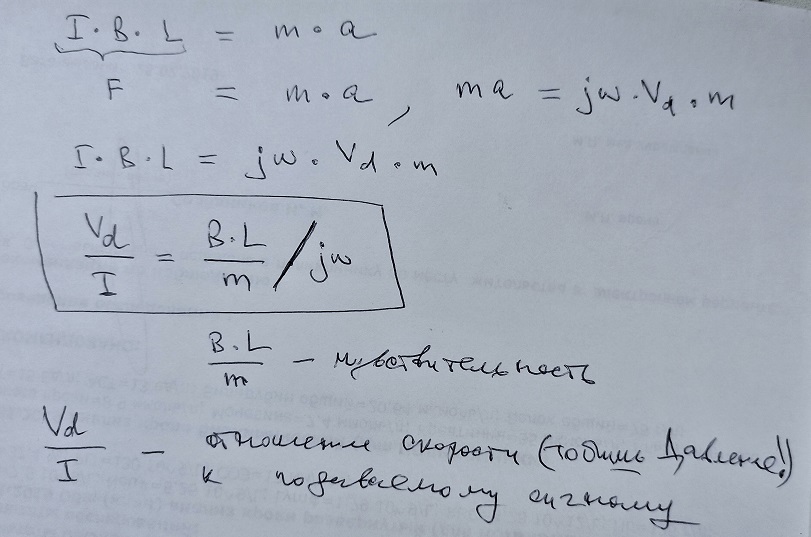 I · B · L = m · a
F = m · a , ma = jw · Vd · m
I · B · L = jw · Vd · m
Vd / I = B · L / m / jw
B · L / m – чувствительность
Vd / I – отношение скорости (тобишь Давление!!)
к подаваемому сигналу